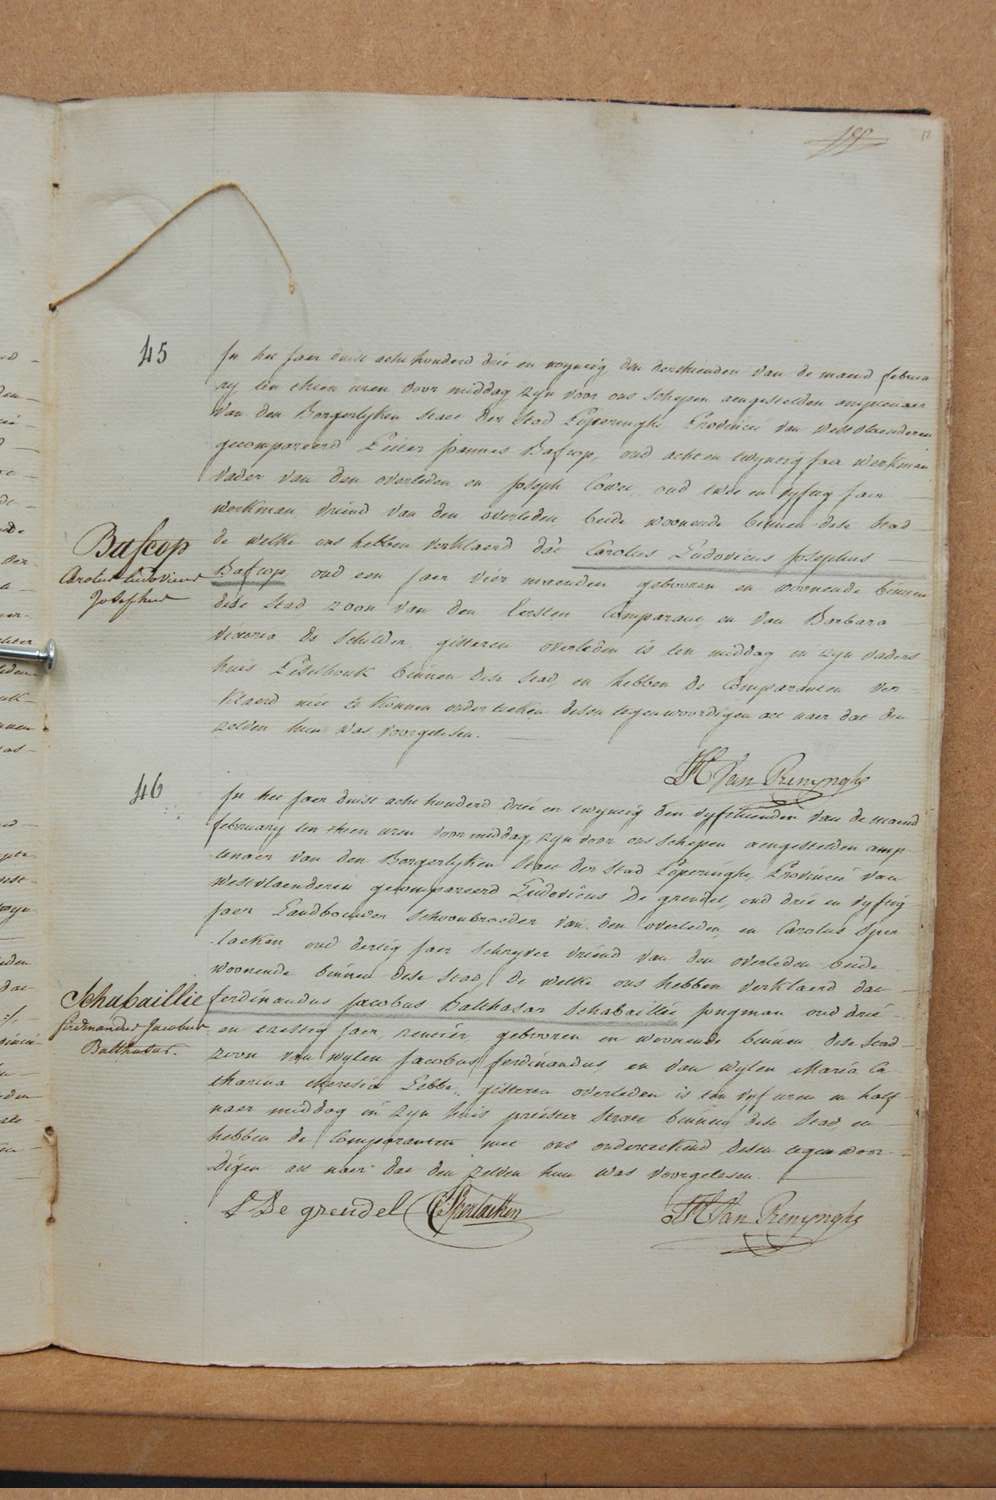 45
In het jaer duist acht honderd drie en twyntig den derthienden van de maend februa
ry ten thien uren voor middag zyn voor ons schepen aengestelden amptenaer
van den Borgerlyken staet der stad Poperinghe Provincie van Westvlaenderen
gecompareerd Pieter Joannes Bascop, oud acht en twyntig jaer werkman
vader van den overleden en Joseph Cowet oud twee en vyftig jaer
werkman, vriend van den overleden beide woonende binnen dese stad
de welke ons hebben verklaerd dat Carolus Ludovicus Josephus
Bascop, oud een jaer vier maenden geboren en woonende binnen
dese stad, zoon van den Eersten Comparant, en van Barbara
Victoria De Schilder, gisteren overleden is ten middag in zyn vaders
huis Peselhouk binnen dese stad, en hebben de Comparanten ver
klaerd niet te konnen onderteeken dessen tegenwoordigen act naer dat den
zelven hun was voorgelesen.
Bascop
Carolus Ludovicus
Josephus
Van Renynghe
46
In het jaer duist acht honderd drie en twyntig den vyfthienden van de maend
february ten thien uren voor middag, zyn voor ons schepen aengestelden amp-
tenaer van den Borgerlyken staet der stad Poperinghe, Provincie van
Westvlaenderen gecompareerd Ludovicus De grendel, oud drie en vyftig
jaer Landbouwer schoonbroeder van den overleden, en Carolus Sper
laeken oud dertig jaer schryver vriend van den overleden beide
woonende binnen dese stad, de welke ons hebben verklaerd dat
ferdinandus Jacobus Balthasar Schabaillie jongman oud drie
en tzestig jaer rentier geboren en woonende binnen dese stad
zoon van wylen Jacobus ferdinandus en van wylen Maria Ca
tharina theresia Lebbe, gisteren overleden is ten vyf uren en half
naer middag in zyn huis priester straet binnen dese stad en
hebben de Comparanten met ons onderteekend dessen tegenwoor-
digen act naer dat den zelven hun was voorgelesen.
Schabaillie
ferdinandus Jacobus
Balthasar.
L De grendel
C Sperlaeken
Van Renynghe